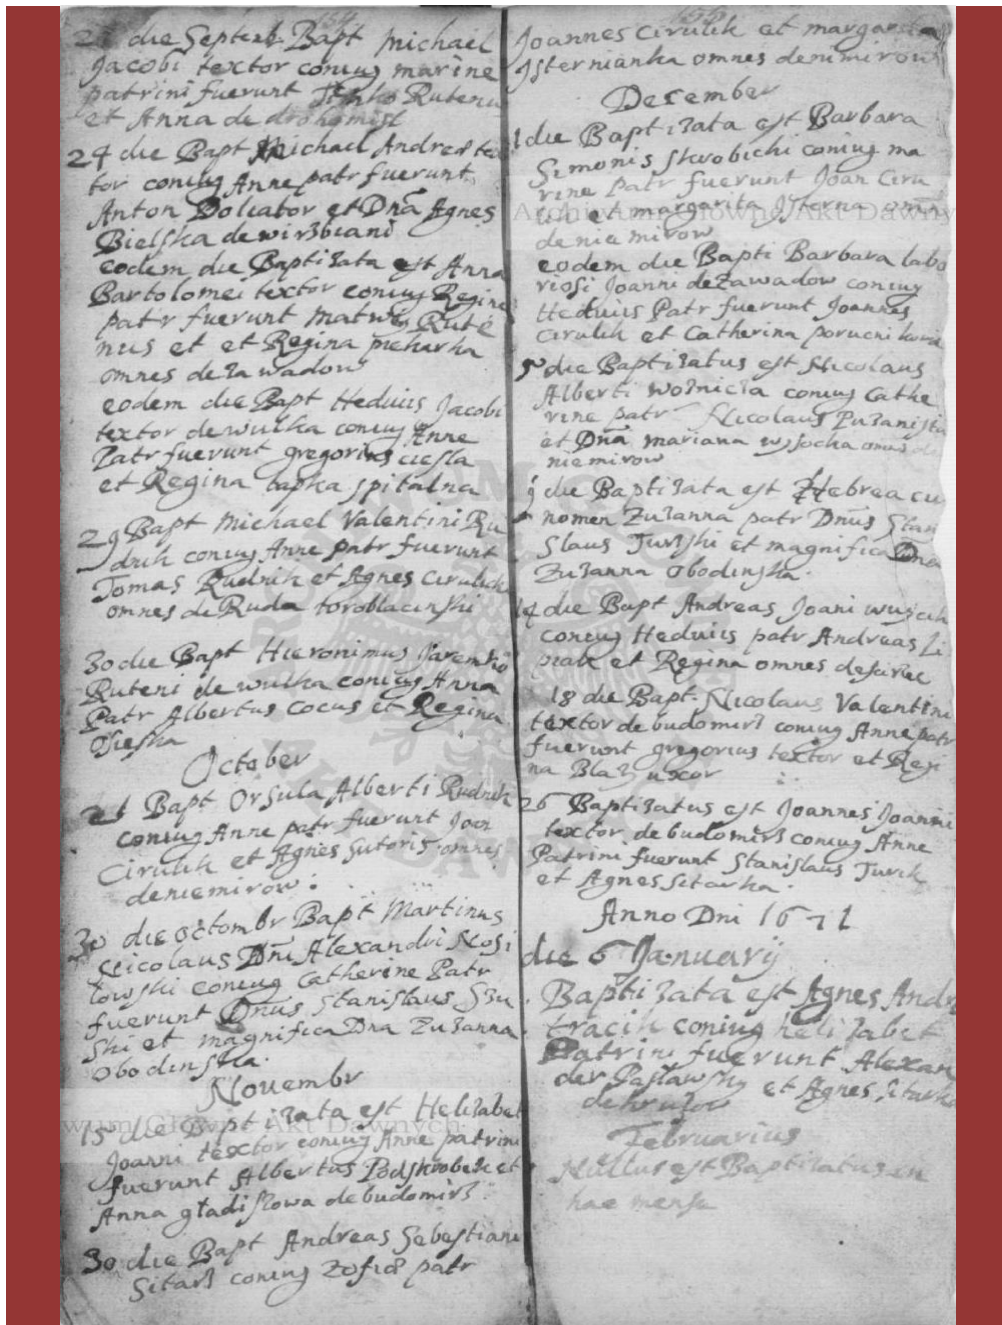 154
die Septebr Bapt Michael
Jacobi textor coniug marine
patrini fuerunt Rutenu
et Anna de
24 die Bapt Michael Andreæ tex
tor coniug Anne patr fuerunt
Anton Doliator et Dna Agnes
Bielska de wirzbiani
eodem die Baptizata est Anna
Bartolomei textor coniug Regine
patr fuerunt matwey Rute
nus et et Regina piekarka
omnes de zawadow
eodem die Bapt Heduiis Jacobi
textor de wulka coniug Anne
Patr fuerunt gregorius ciesla
et Regina bapka spitalna
29 Bapt Michael Valentini Ru
dnik coniug Anne patr fuerunt
Tomas Rudnik et Agnes cirulick
omnes de Ruda
30 die Bapt Hieronimus
Ruteni de wulka coniug Anna
Patr Albertus Cocus et Regina
October
21 Bapt Orsula Alberti Rudnik
coniug Anne patr fuerunt Joan
Cirulik et Agnes Sutoris omnes
de niemirow:
30 die octombr Bapt Martinus
Nicolaus Dni Alexandri Kosi
lowski coniug Catherine Patr
fuerunt Dnus Stanislaus
ski et magnifica Dna Zuzanna
Obodinska.
Novembr
15 die Baptizata est Helizabet
Joanni textor coniug Anne patrini
fuerunt Albertus Podskrobek et
Anna gładiszowa de budomirz
30 die Bapt Andreas Sebestiani
Sitarz coniug Zofiæ patr
155
Joannes Cirulik et margareta
Isternianka omnes de nimirow
December
1 die Baptizata est Barbara
Simonis skrobichi coniug ma
rine patr fuerunt Joan Ciru
lik et margarita Isterna omnes
de niemirow
eodem die Bapti Barbara labo
riosi Joanni de Zawadow coniug
Heduiis Patr fuerunt Joannes
Cirulik et Catherina
5 die Baptizatus est Nicolaus
Alberti woznicza coniug Cathe
rine patr Nicolaus
et Dna mariana wysocka omnes de
niemirow
9 die Baptizata est Hebrea cu
nomen Zuzanna patr Dnus Stani
slaus Turzski et magnifica Dna
Zuzanna obodinska.
14 die Bapt Andreas Joani
coniug Heduiis patr Andreas
et Regina omnes de
18 die Bapt Nicolaus Valentini
textor de budomirz coniug Anne patr
fuerunt gregorius textor et Regi
na Blaz uxor
26 Baptizatus est Joannes Joanni
textor de budomirz coniug Anne
Patrini fuerunt Stanislaus Turek
et Agnes sitarka.
Anno Dni 1671
die 6 January
Baptizata est Agnes Andre
tracik coniug helizabet
Patrini fuerunt Alexan
der Pasławsky et Agnes sitarka
de hruzow
Februarius
Nullus est Baptizatus in
hac mense
Archiwum Główne Akt Dawnych